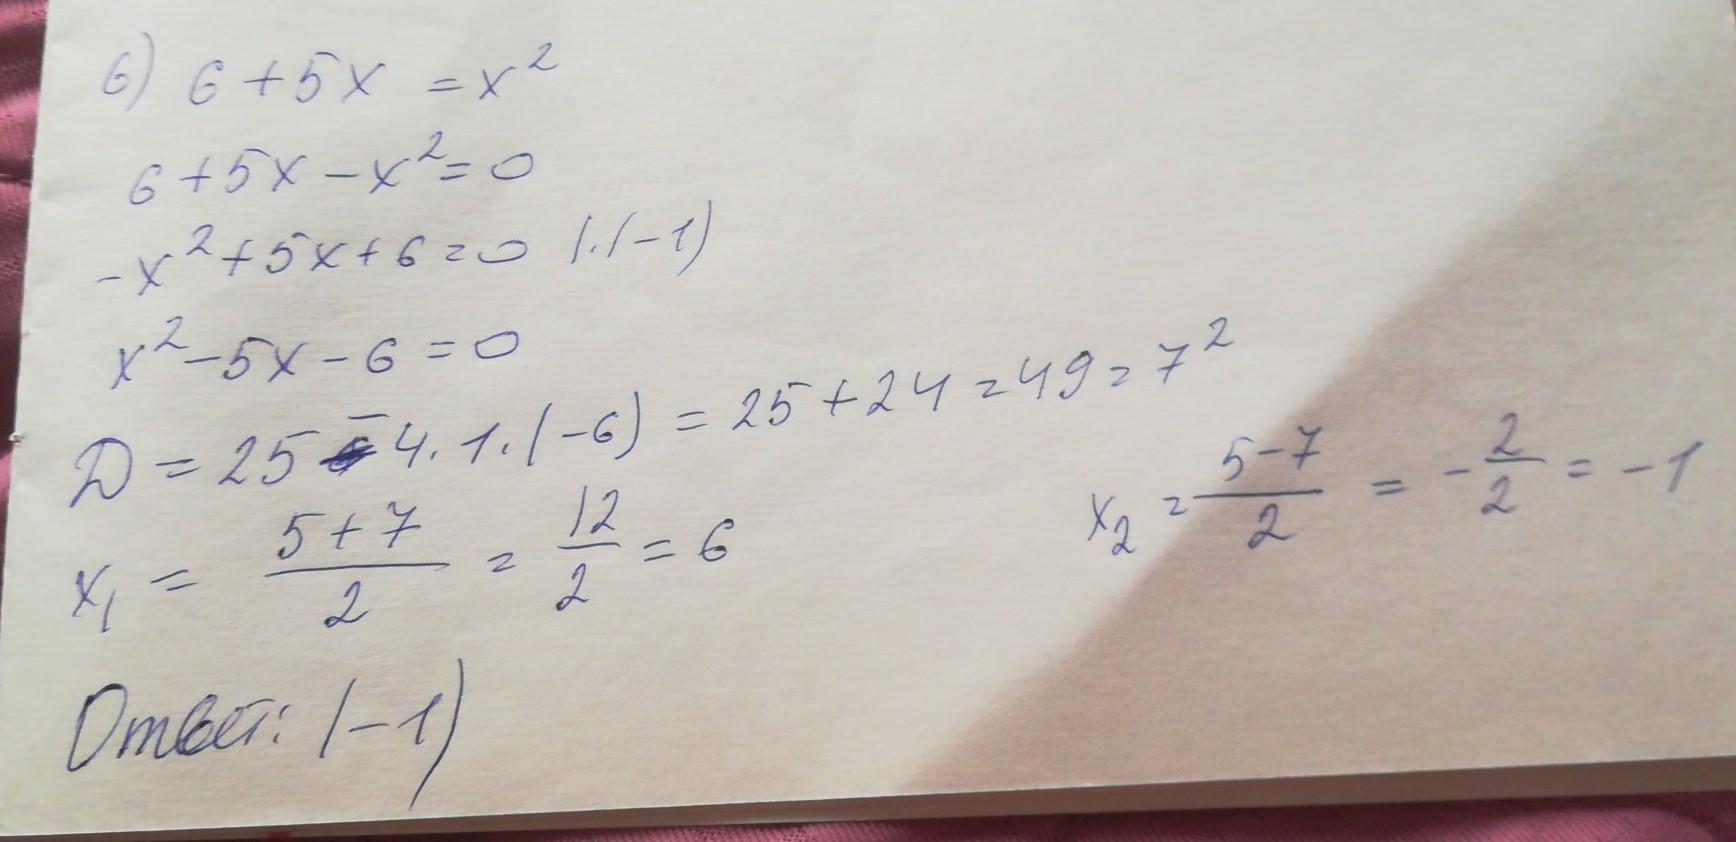 6) 6 + 5x = x²
6 + 5x - x² = 0
-x² + 5x + 6 = 0 |·(-1)
x² - 5x - 6 = 0
D = 25 - 4 · 1 · (-6) = 25 + 24 = 49 = 7²
x₁ = (5 + 7)/2 = 12/2 = 6
x₂ = (5 - 7)/2 = -2/2 = -1
Ответ: (-1)